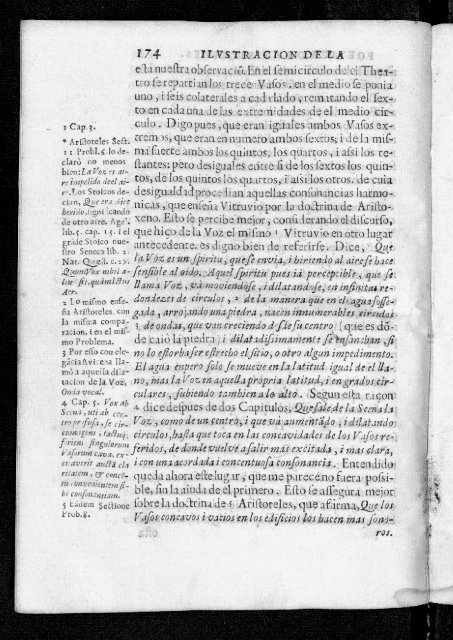 174 ILVSTRACION DE LA
esta nuestra observaciõ. En el semicirculo de el Thea-
tro se repartian los trece Vasos, en el medio se ponia
uno, i seis colaterales a cada lado, rematando el sex-
to en cada una de las extremidades de el medio cir-
culo. Digo pues, que eran iguales ambos Vasos ex-
tremos, que eran en numero ambos sextos, i de la mis-
ma suerte ambos los quintos, los quartos, i assi los re-
stantes: pero desiguales entre si de los sextos los quin-
tos, de los quintos los quartos, i assi los otros. de cuia
desigualdad procedian aquellas consonancias harmo-
nicas, que enseña Vitruvio por la doctrina de Aristo-
xeno. Esto se percibe mejor, considerando el discurso,
que hiço de la Voz el mismo 1 Vitruvio en otro lugar
antecedente. es digno bien de referirse. Dice, Que
la Voz es un spiritu, que se envia, i hiriendo al aire se hace
sensible al oido. Aquel spiritu pues ia perceptible, que se
llama Voz, va moviendose, i dilatandose, en infinitas re-
dondezes de circulos, 2 de la manera que en el agua sosse-
gada, arrojando una piedra, nacen innumerables circulos
3 de ondas, que van creciendo desde su centro (que es dõ-
de caiò la piedra) i dilatadissimamente se ensanchan, si
no lo estorbasse estrecho el sitio, o otro algun impedimento.
El agua empero solo se mueve en la latitud igual de el lla-
no, mas la Voz en aquella propria latitud, i en grados cir-
culares, subiendo tambien a lo alto. Segun esta raçon
4 dice despues de dos Capitulos, Que sale de la Scena la
Voz, como de un centro, i que va aumentãdo, i dilatando
circulos, hasta que toca en las concavidades de los Vasos re-
feridos, de donde vuelve a salir mas excitada, i mas clara,
i con una acordada i concentuosa consonancia. Entendido
queda ahora este lugar, que me parece no fuera possi-
ble, sin la aiuda de el primero. Esto se assegura mejor
sobre la doctrina de 5 Aristoteles, que afirma, Que los
Vasos concavos i vacios en los edificios los hacen mas sono-
ros.
1 Cap. 3.
* Aristoteles Sect.
11. Probl. 6. lo de-
clarò no menos
bien: La Voz es ai-
re impelido de el ai-
re. Los Stoicos de-
cian, Que era aire
herido, significando
de otro aire.
lib. 5. cap. 15. i el
grãde Stoico nues-
tro Seneca lib. 2.
Nat. Quest. c. 29.
Quum Vox nihil a-
liud sit, quàm ictus
Aer.
2 Lo mismo ense-
ña Aristoteles con
la misma compa-
racion, i en el mis-
mo Problema.
3 Por esso con ele-
gãcia lla-
mò a aquella dila-
tacion de la Voz,
Onda vocal.
4 Cap. 5. Vox ab
Scena, uti ab cen-
tro profusa, se cir-
cumagens, tactuq;
feriens singulorum
Vasorum cava, ex-
citaverit auctã cla-
ritatem, & concẽ-
tu convenientem si-
bi consonantiam.
5 Eadem Sectione
Prob. 8.